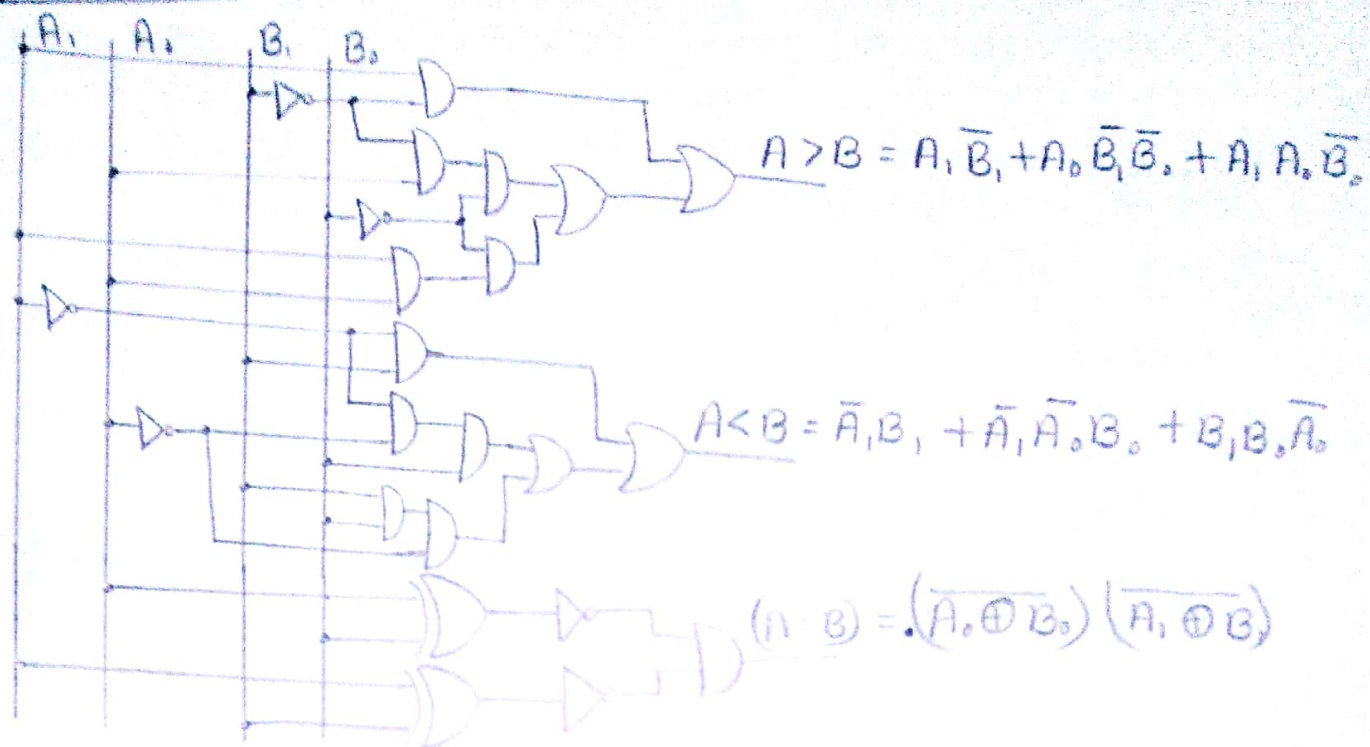 A₁ A₀ B₁ B₀
A > B = A₁ B̅₁ + A₀ B̅₁ B̅₀ + A₁ A₀ B̅₀
A < B = A̅₁ B₁ + A̅₁ A̅₀ B₀ + B₁ B₀ A̅₀
(A B) = (A̅₀̅ ̅⊕̅ ̅B̅₀) (A̅₁̅ ̅⊕̅ ̅B̅₁)